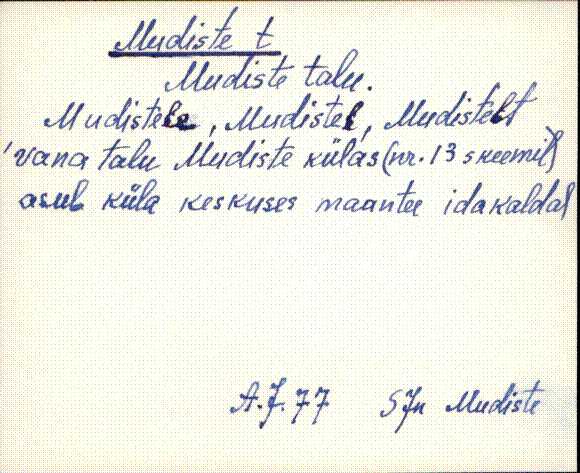 Mudiste t
Mudiste talu.
Mudistele, Mudistel, Mudistelt
'vana talu Mudiste külas (nr. 13 skeemil)
asub küla keskuses maantee idakaldal
A.J. 77 SJn Mudiste